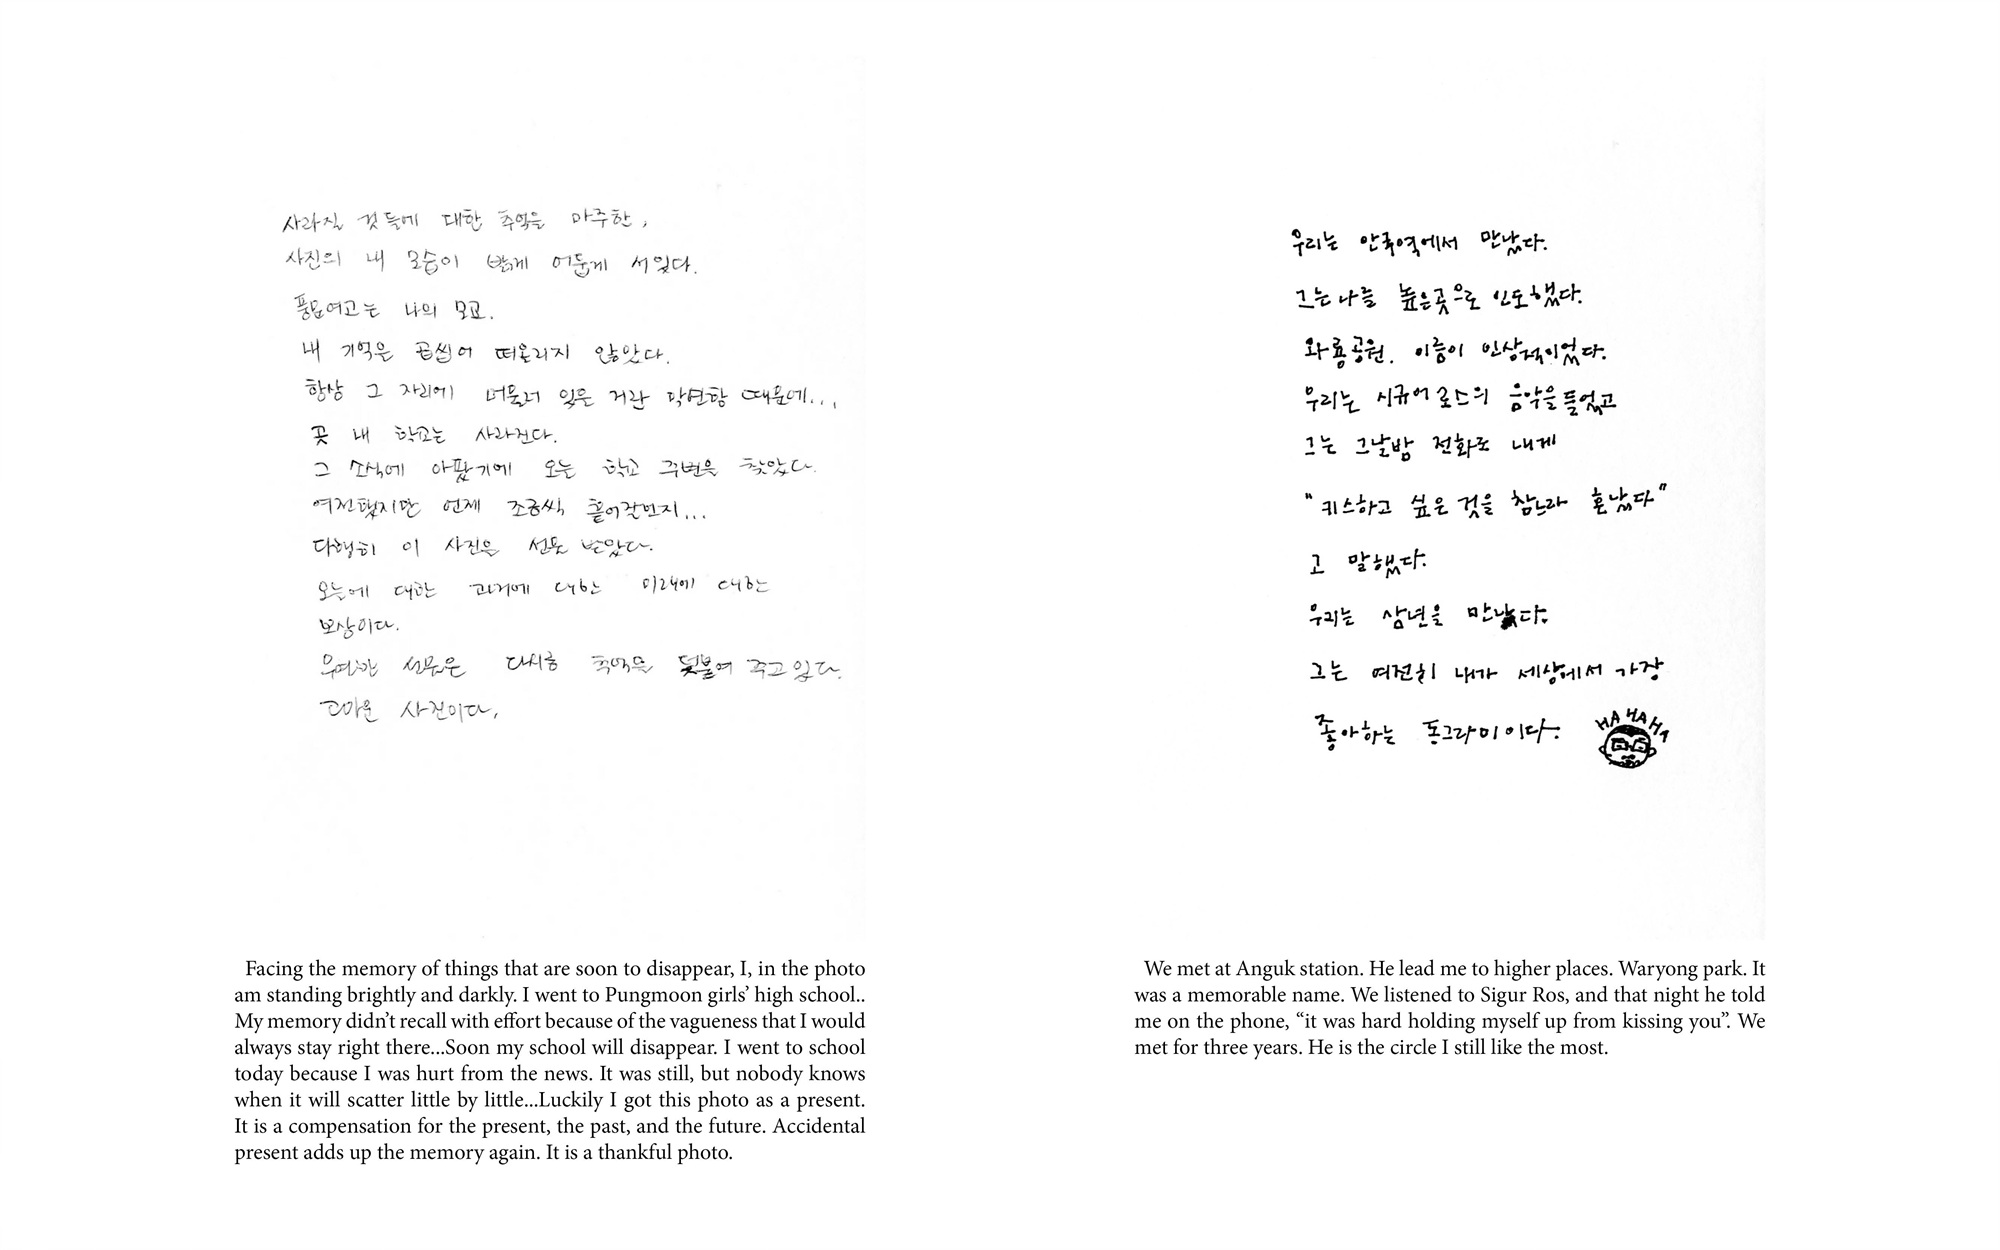 사라질 것들에 대한 추억을 마주한,
사진의 내 모습이 밝게 어둡게 서있다.
풍문여고는 나의 모교.
내 기억은 곱씹어 떠올리지 않았다.
항상 그 자리에 머물러 있을 거란 막연함 때문에...
곧 내 학교는 사라진다.
그 소식에 아팠기에 오늘 학교 주변을 찾았다.
여전했지만 언제 조금씩 흩어갈런지...
다행히 이 사진은 선물 받았다.
오늘에 대한 과거에 대한 미래에 대한
보상이다.
우연한 선물은 다시금 추억을 덧붙여 주고 있다.
고마운 사진이다.
Facing the memory of things that are soon to disappear, I, in the photo
am standing brightly and darkly. I went to Pungmoon girls’ high school..
My memory didn’t recall with effort because of the vagueness that I would
always stay right there...Soon my school will disappear. I went to school
today because I was hurt from the news. It was still, but nobody knows
when it will scatter little by little...Luckily I got this photo as a present.
It is a compensation for the present, the past, and the future. Accidental
present adds up the memory again. It is a thankful photo.
우리는 안국역에서 만났다.
그는 나를 높은곳으로 인도했다.
와룡공원. 이름이 인상적이었다.
우리는 시규어로스의 음악을 들었고
그는 그날밤 전화로 내게
"키스하고 싶은 것을 참느라 혼났다"
고 말했다.
우리는 삼년을 만났다.
그는 여전히 내가 세상에서 가장
좋아하는 동그라미이다.
HA HA HA
We met at Anguk station. He lead me to higher places. Waryong park. It
was a memorable name. We listened to Sigur Ros, and that night he told
me on the phone, “it was hard holding myself up from kissing you”. We
met for three years. He is the circle I still like the most.